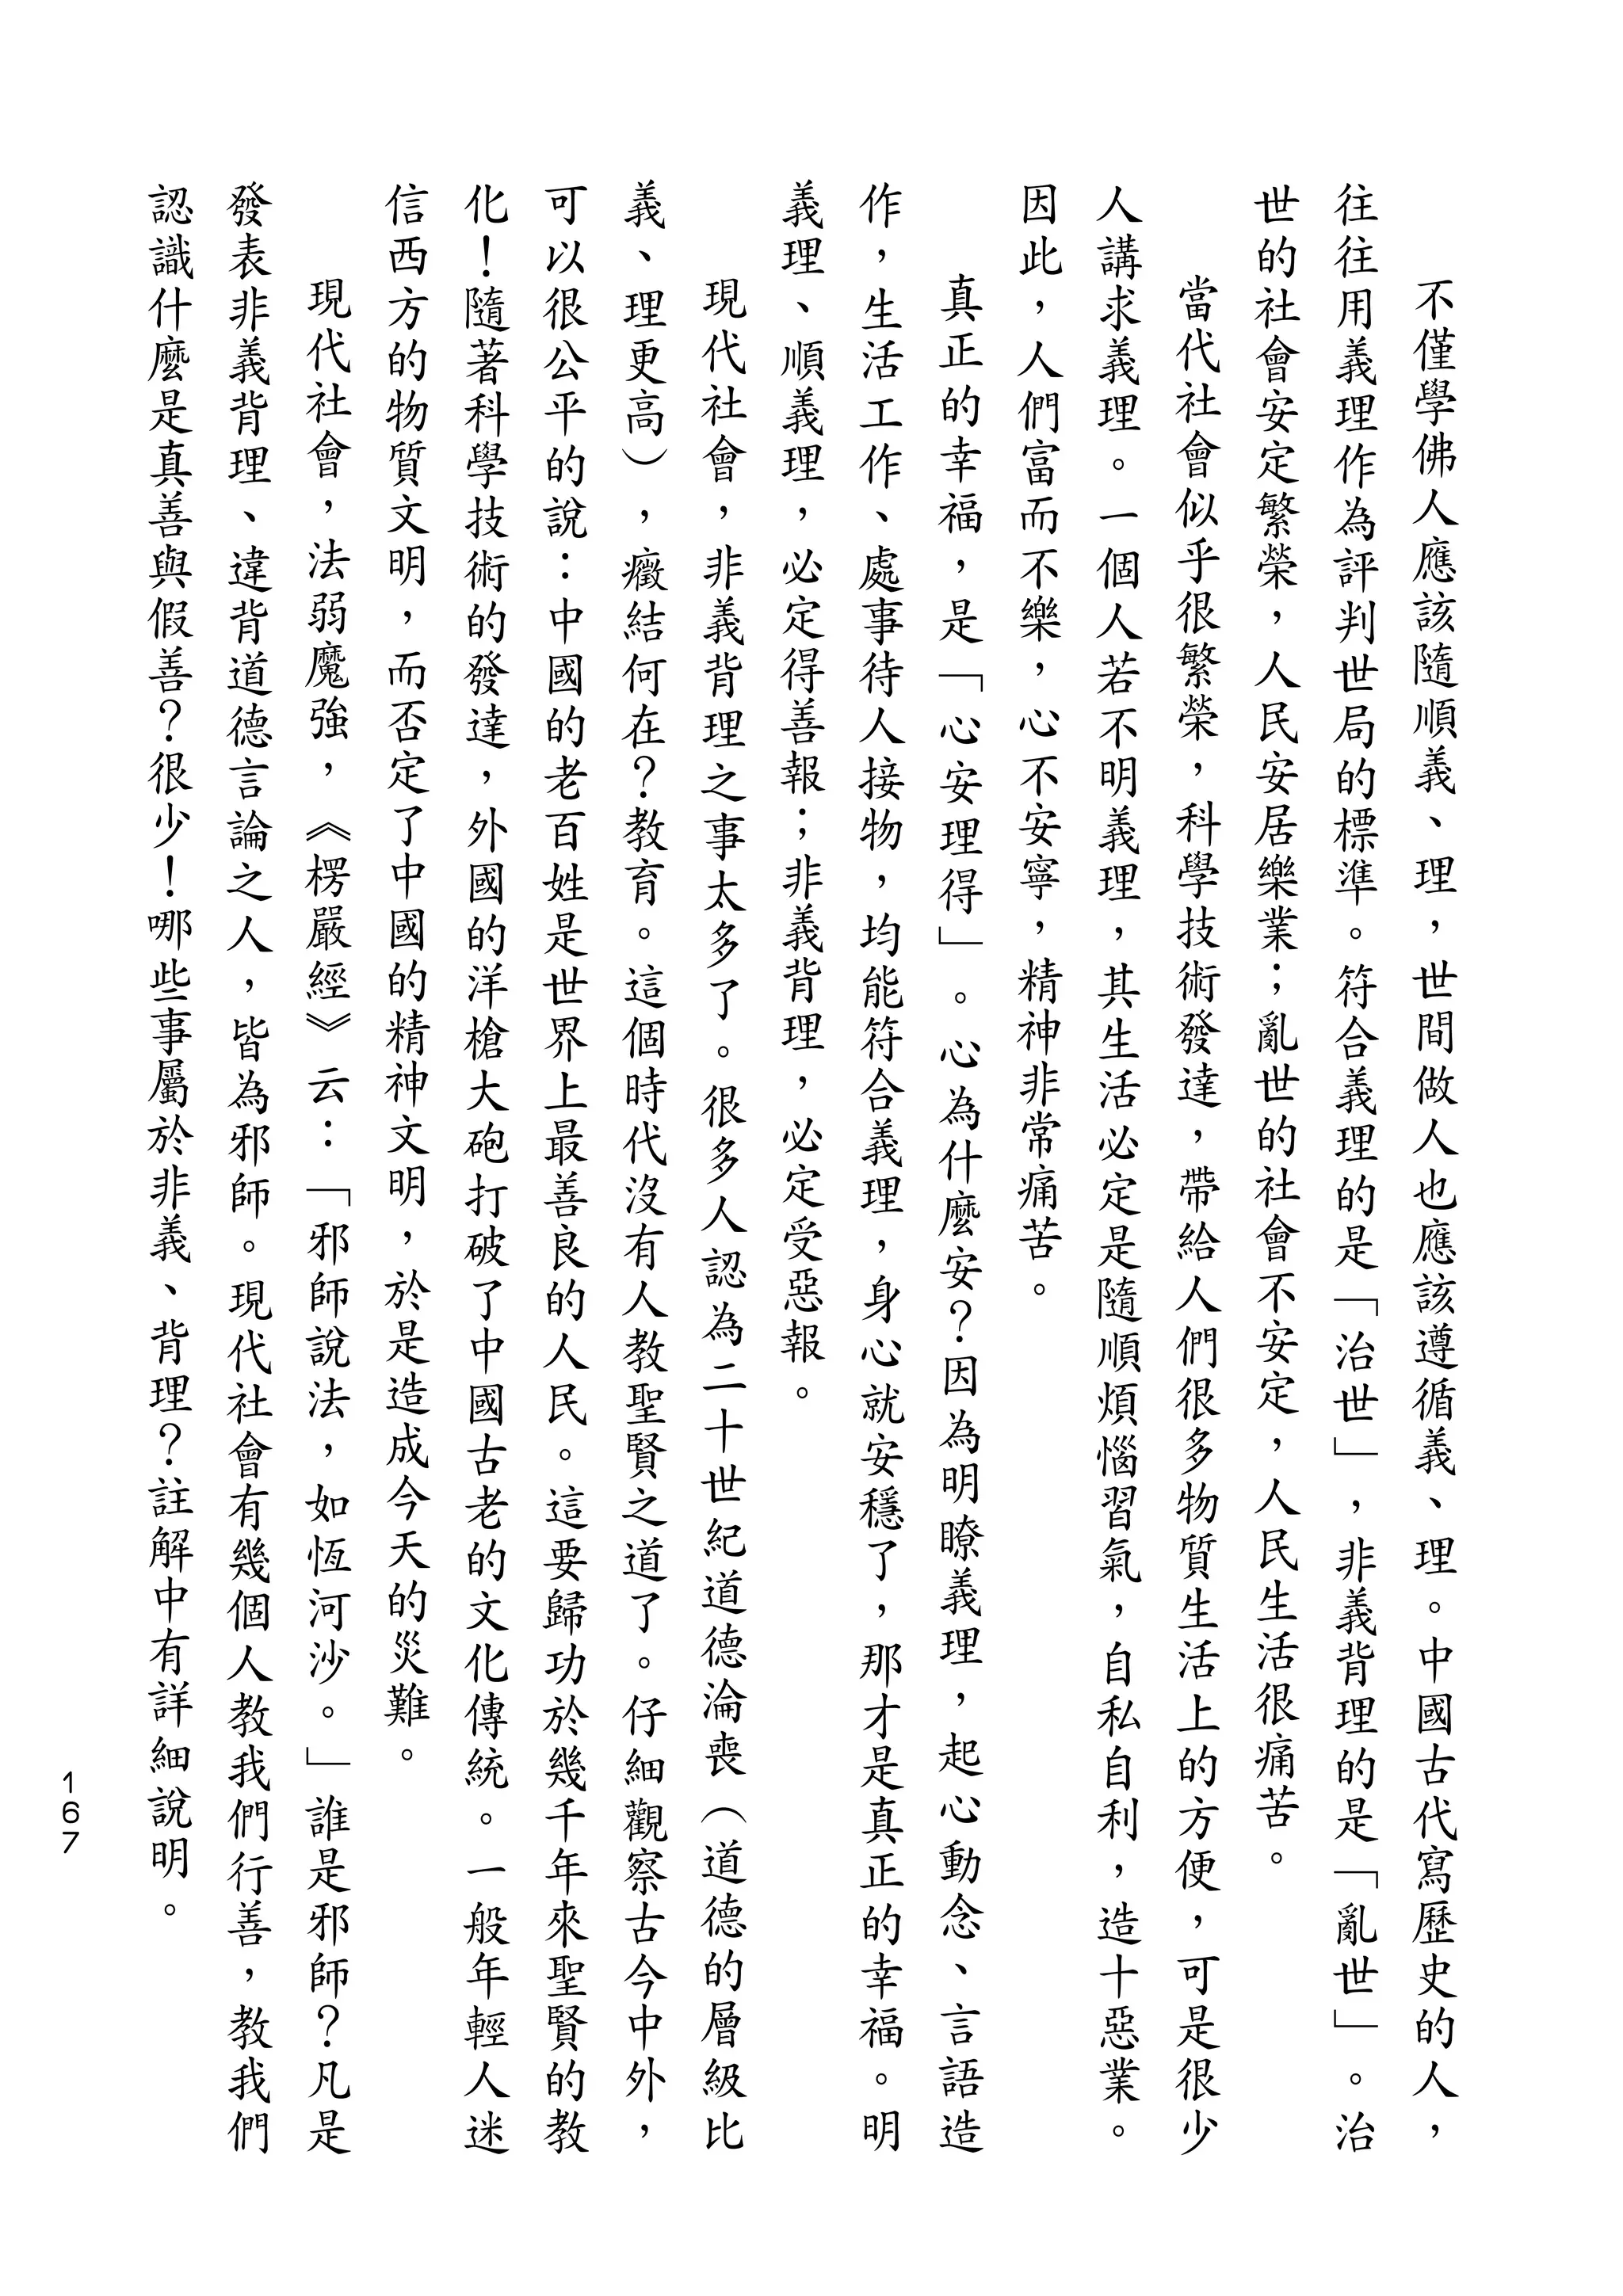 不僅學佛人應該隨順義、理，世間做人也應該遵循義、理。中國古代寫歷史的人，
往往用義理作為評判世局的標準。符合義理的是「治世」，非義背理的是「亂世」。治
世的社會安定繁榮，人民安居樂業；亂世的社會不安定，人民生活很痛苦。
當代社會似乎很繁榮，科學技術發達，帶給人們很多物質生活上的方便，可是很少
人講求義理。一個人若不明義理，其生活必定是隨順煩惱習氣，自私自利，造十惡業。
因此，人們富而不樂，心不安寧，精神非常痛苦。
真正的幸福，是「心安理得」。心為什麼安？因為明瞭義理，起心動念、言語造
作，生活工作、處事待人接物，均能符合義理，身心就安穩了，那才是真正的幸福。明
義理、順義理，必定得善報；非義背理，必定受惡報。
現代社會，非義背理之事太多了。很多人認為二十世紀道德淪喪（道德的層級比
義、理更高），癥結何在？教育。這個時代沒有人教聖賢之道了。仔細觀察古今中外，
可以很公平的說：中國的老百姓是世界上最善良的人民。這要歸功於幾千年來聖賢的教
化！隨著科學技術的發達，外國的洋槍大砲打破了中國古老的文化傳統。一般年輕人迷
信西方的物質文明，而否定了中國的精神文明，於是造成今天的災難。
現代社會，法弱魔強，《楞嚴經》云：「邪師說法，如恆河沙。」誰是邪師？凡是
發表非義背理、違背道德言論之人，皆為邪師。現代社會有幾個人教我們行善，教我們
認識什麼是真善與假善？很少！哪些事屬於非義、背理？註解中有詳細說明。
167